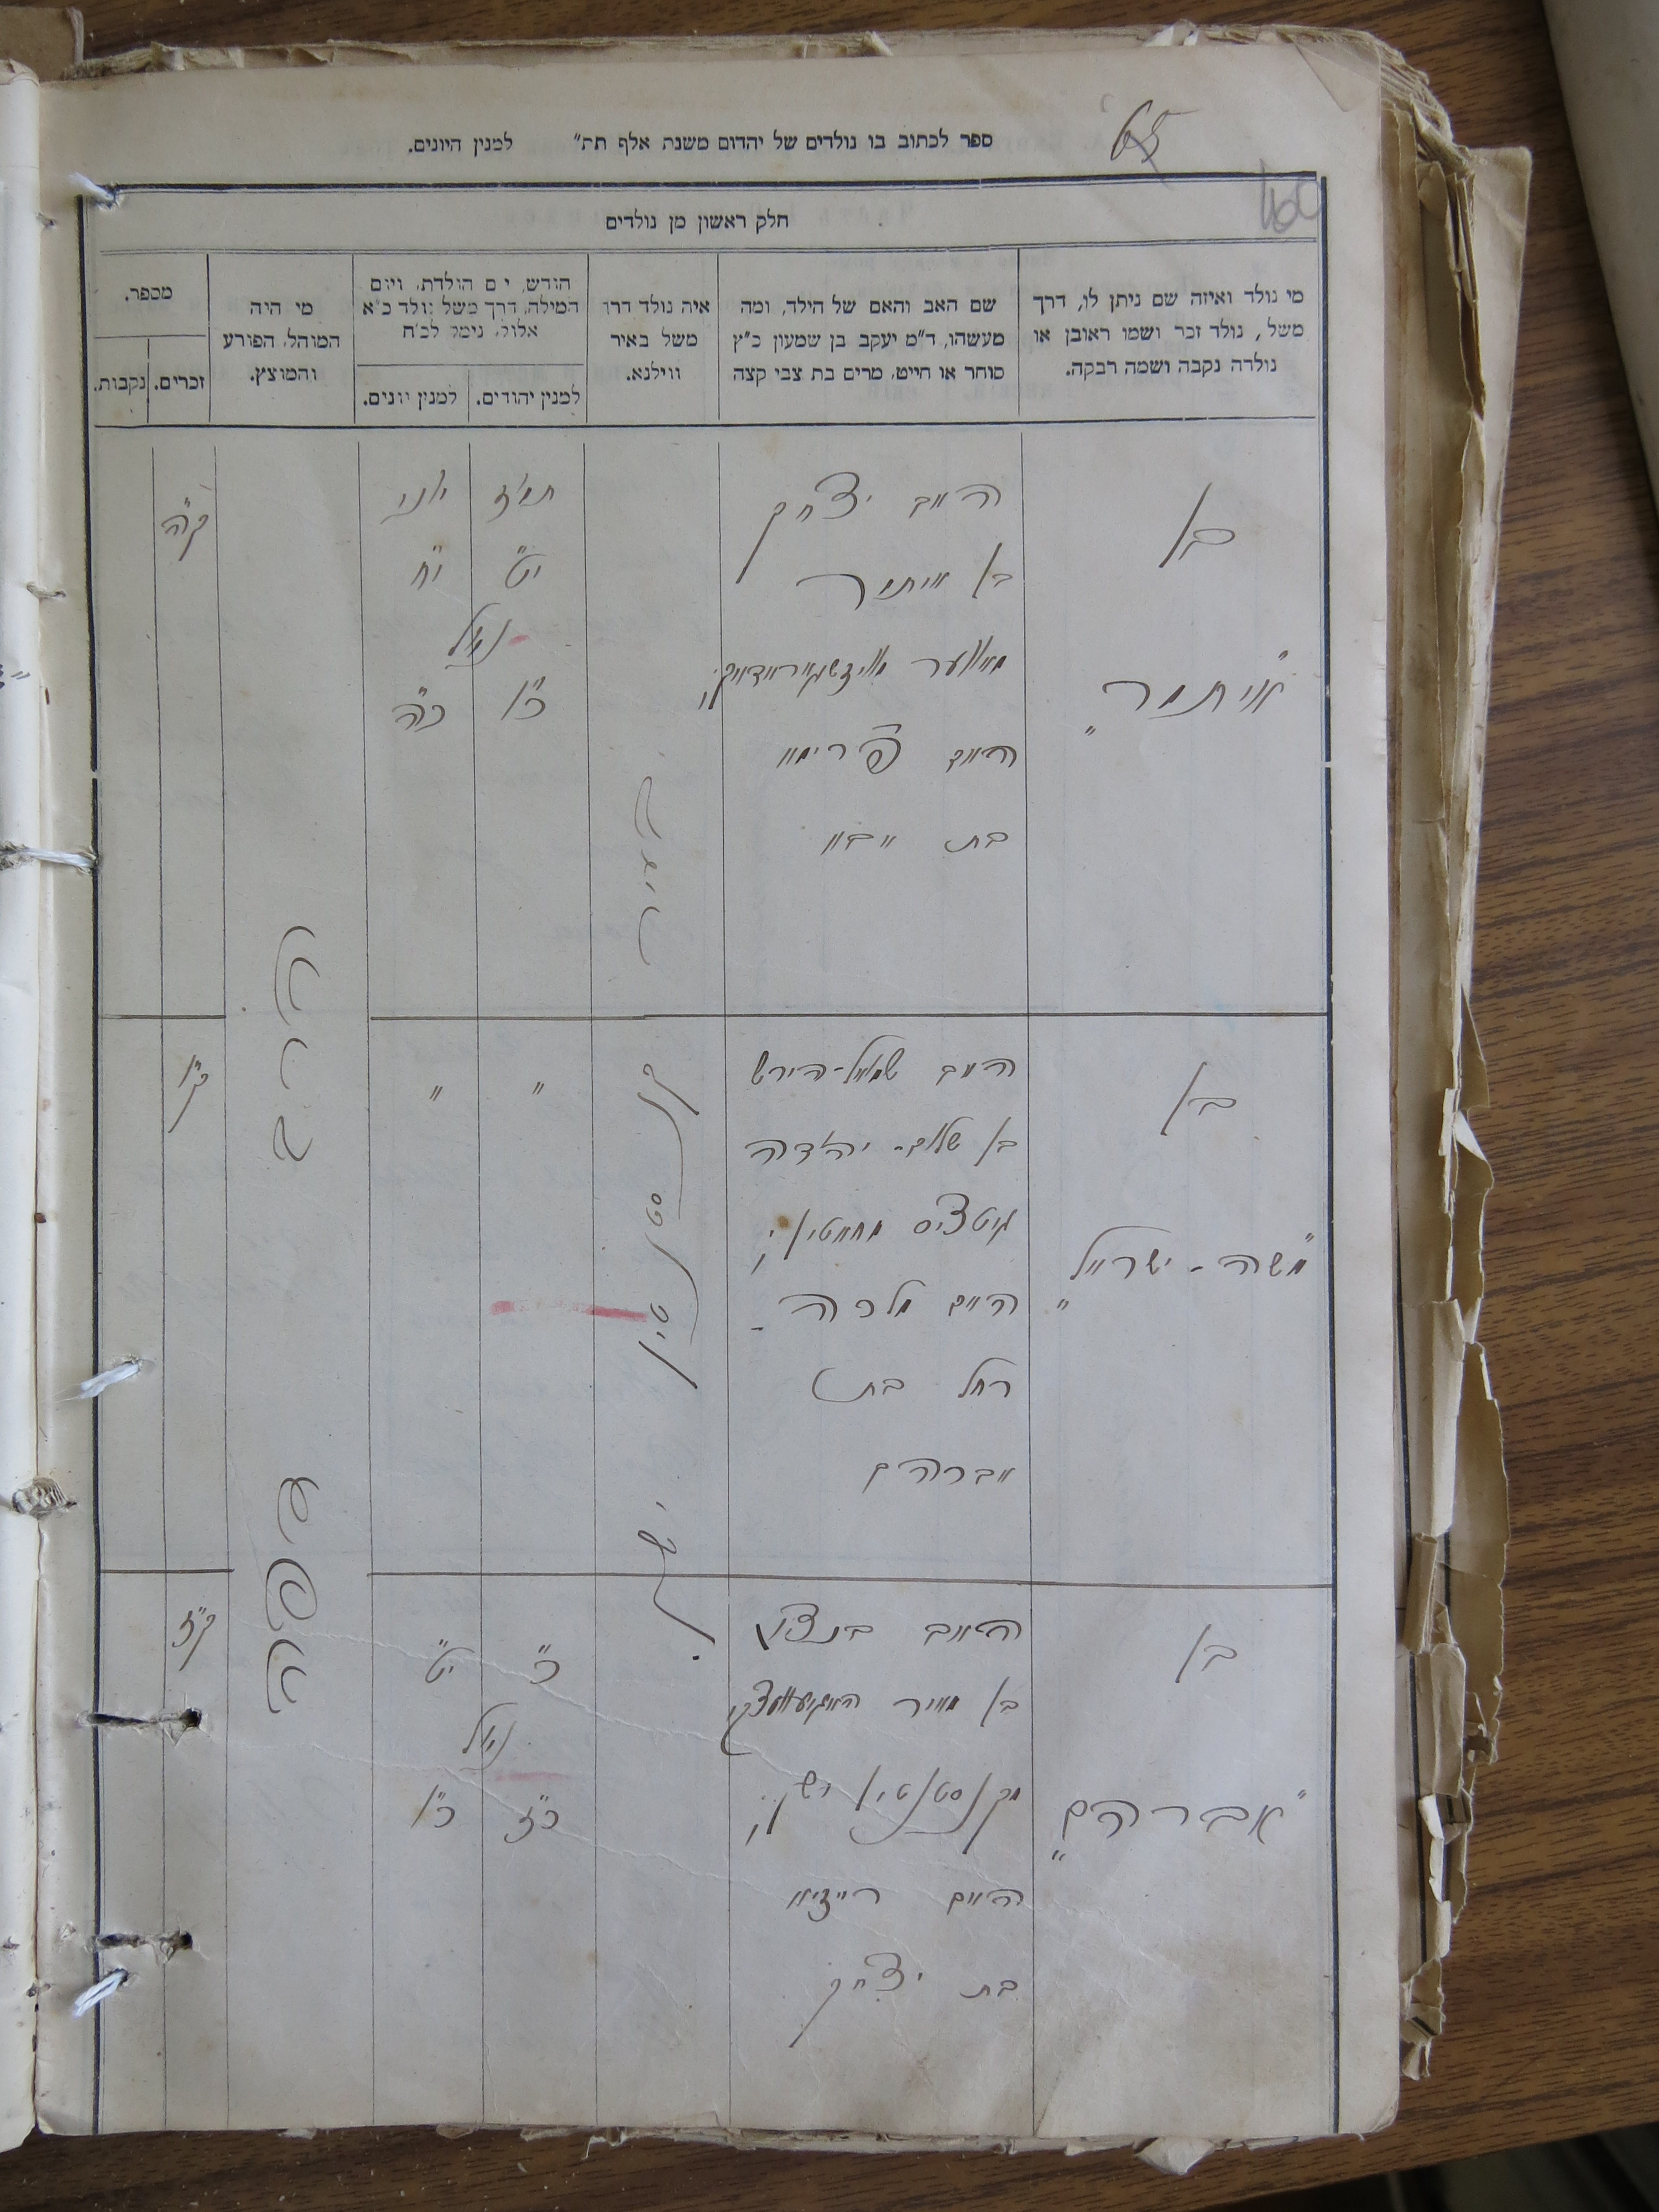 65
160
ספר לכתוב בו נולדים של יהדום משנת אלף תת״ למנין היונים.
חלק ראשון מן נולדים
מי נולד ואיזה שם ניתן לו, דרך
משל, נולד זכר ושמו ראובן או
נולדה נקבה ושמה רבקה.
שם האב והאם של הילד, ומה
מעשהו, ד״מ יעקב בן שמעון כ״ץ
סוחר או חייט, מרים בת צבי קצה
איה נולד דרך
משל באיר
ווילנא.
חודש, ים הולדת, ויום
המילה, דרך משל נולד כ״א
אלול, נימל לכ״ח
למנין יהודים.
למנין יונים.
מי היה
המוהל, הפורע
והמוצץ.
מספר.
זכרים.
נקבות.
בן
״איתמר״
האב יצחק
בן איתמר
האם פרומא
בת
תמוז
יט״
נימל
כ״ו
יוני
י״ח
כ״ה
ק״ה
בן
״משה - ישראל״
האב שמואל-הירש
בן שלום - יהודה
האם מלכה -
רחל בת
אברהם
״
״
ק״ו
בן
״אברהם״
האב בנציון
בן מאיר
מקונסטנטין ישן,
האם רייזא
בת יצחק
כ״
נימל
כ״ז
י״ט
כ״ו
ק״ז
לעיר
קונסטנטין
ישן.
הרב